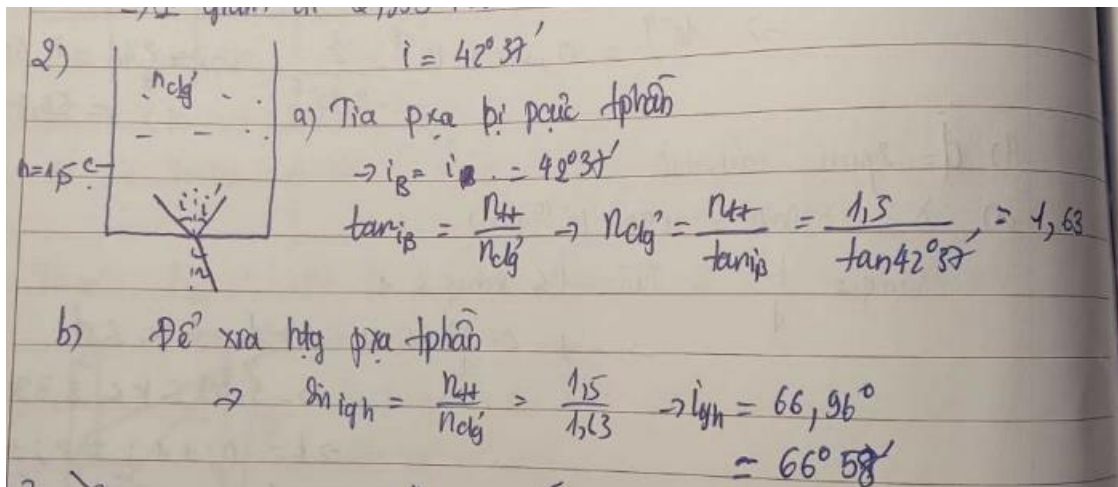 2)
i = 42°37'
nclg'
a) Tia pxạ bị pcực tphần
n=1,5
→ iB = i = 42°37'
tan iB = ntt / nclg' → nclg' = ntt / tan iB = 1,5 / tan 42°37' = 1,63
i i'
i2
b) Để xra htg pxạ tphần
⇒ sin igh = ntt / nclg' = 1,5 / 1,63 → igh = 66,96°
= 66°58'